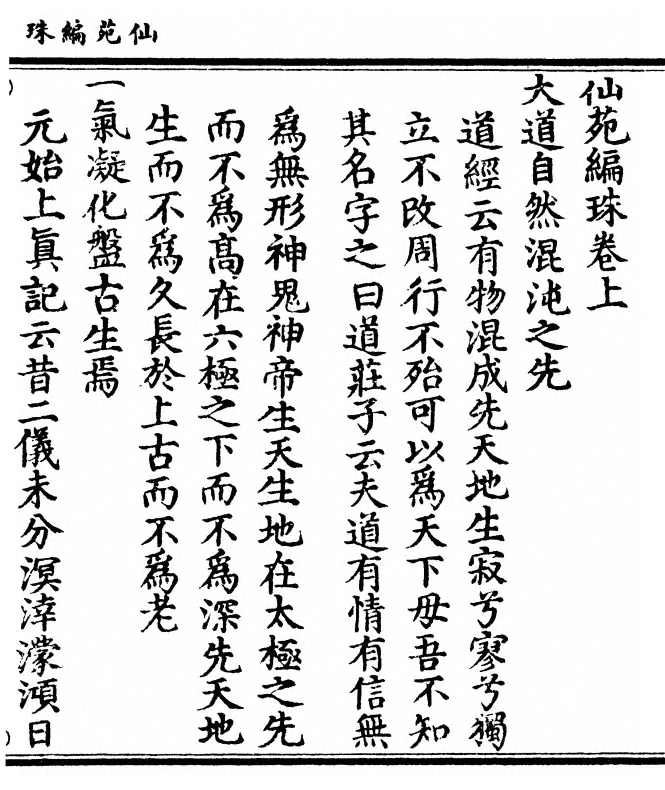 仙苑編珠
仙苑編珠卷上
大道自然混沌之先
道經云有物混成先天地生寂兮寥兮獨
立不改周行不殆可以爲天下母吾不知
其名字之曰道莊子云夫道有情有信無
爲無形神鬼神帝生天生地在太極之先
而不爲髙在六極之下而不爲深先天地
生而不爲久長於上古而不爲老
一氣凝化盤古生焉
元始上眞記云昔二儀未分溟涬濛澒日